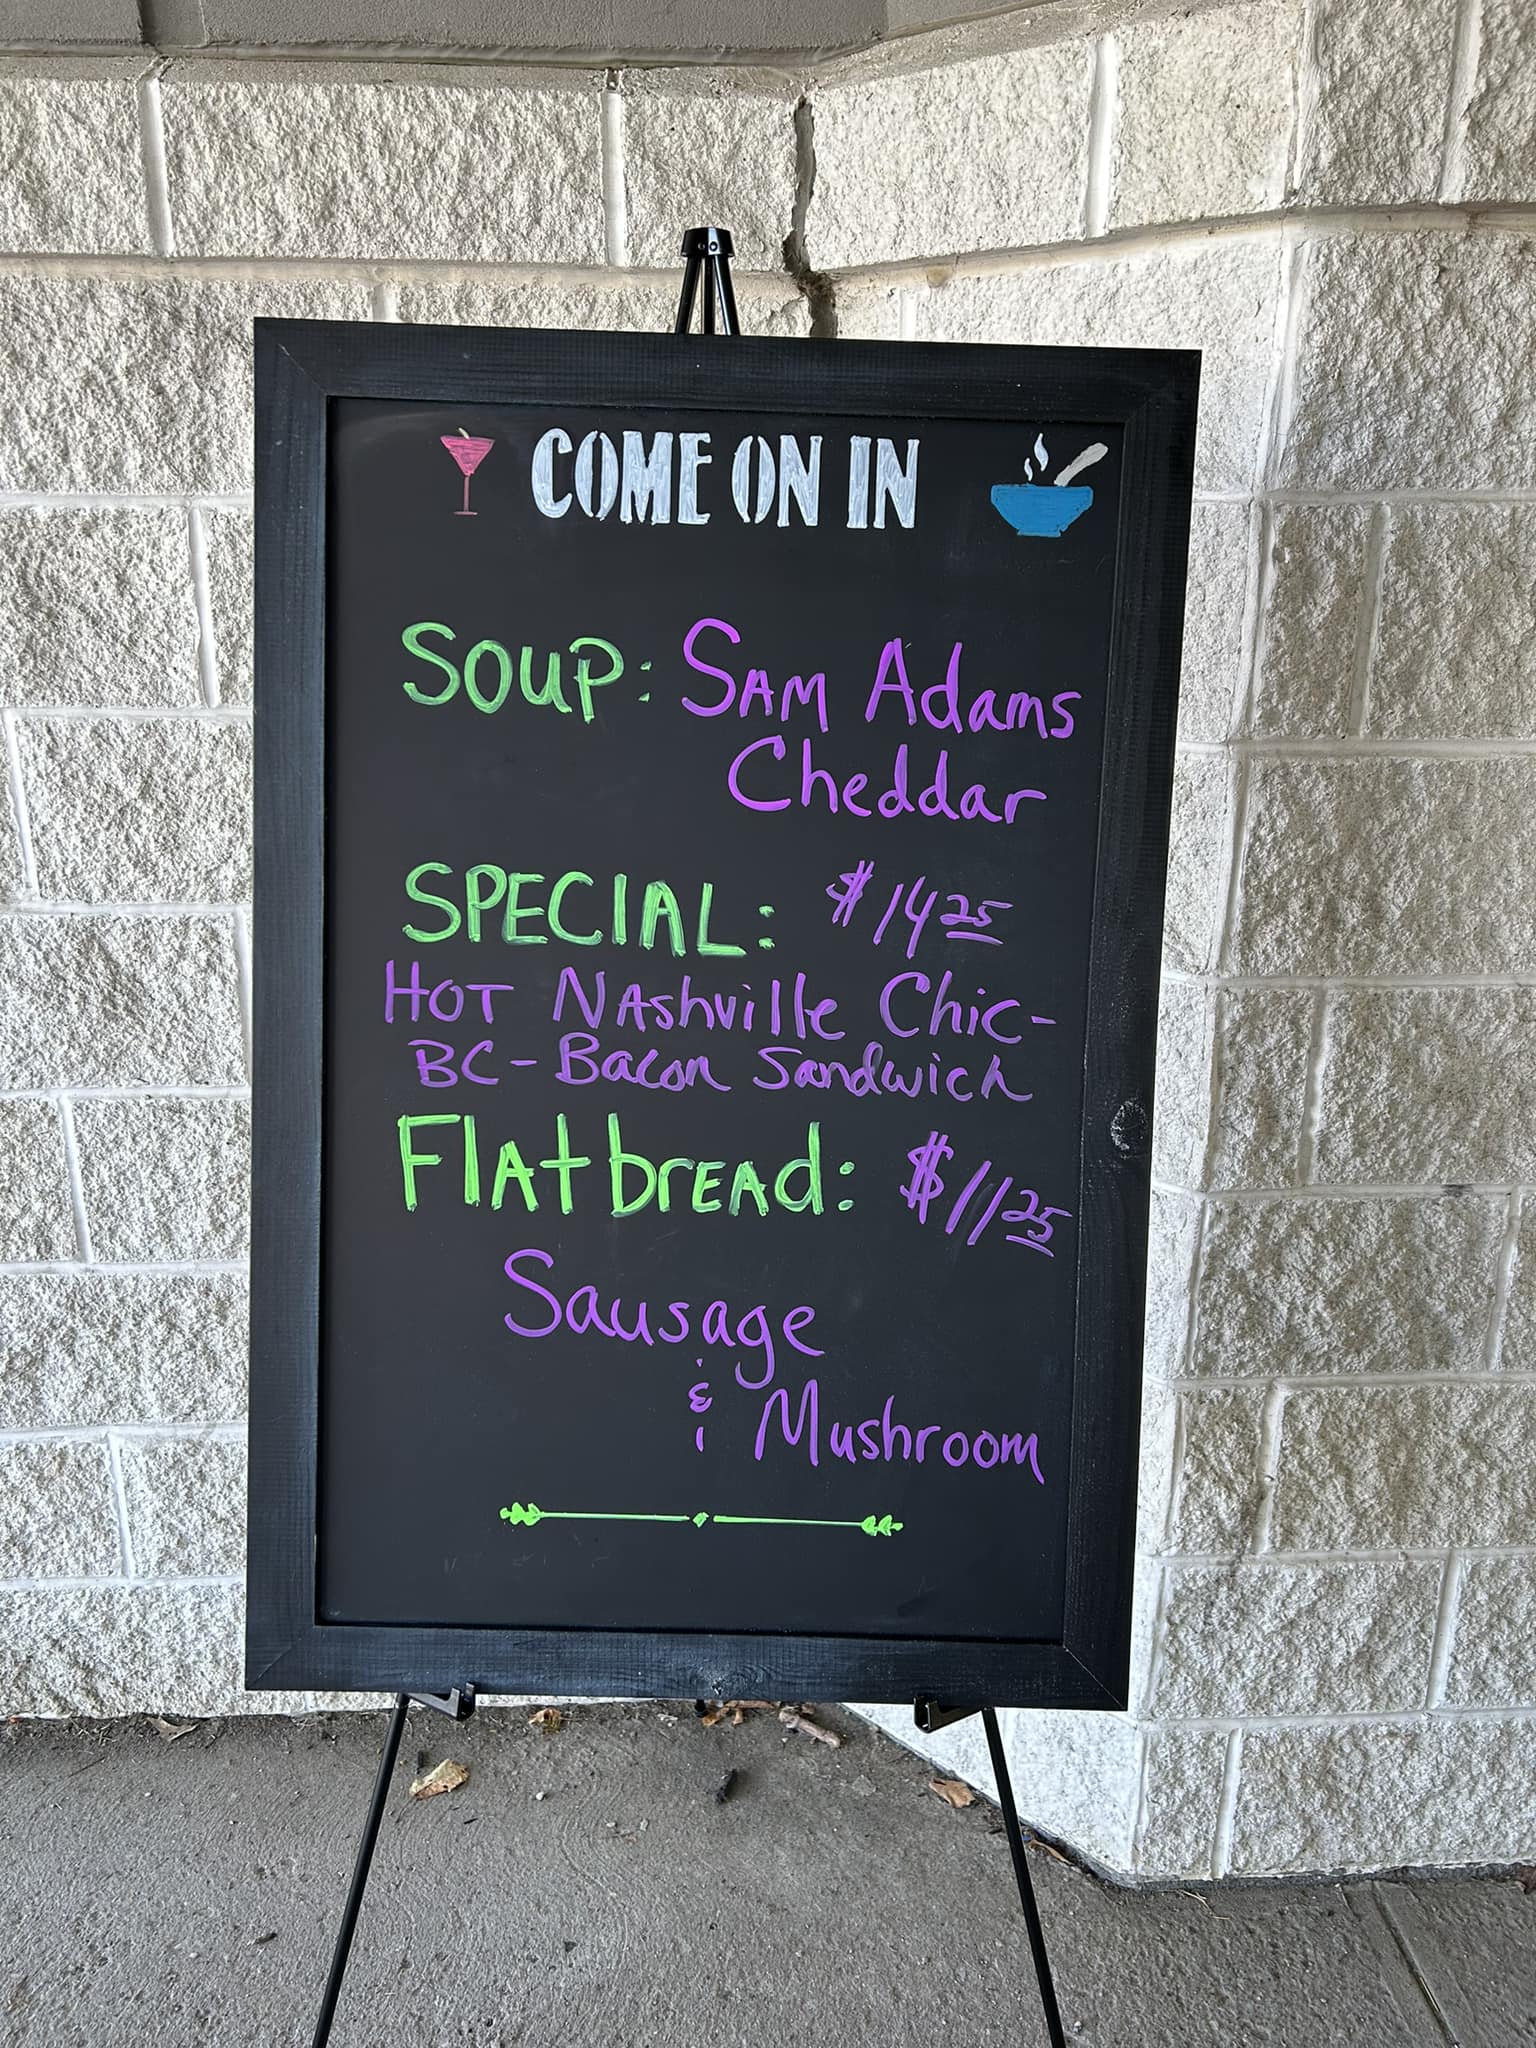 COME ON IN
SOUP: SAM Adams
Cheddar
SPECIAL: $14.25
HOT NAshville Chic-
BC-Bacon Sandwich
FlAtbreAd: $11.25
Sausage
& Mushroom